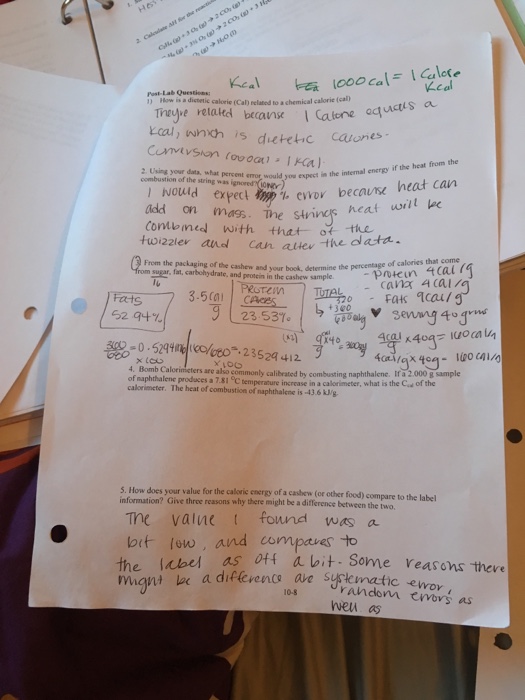 1. Hes
2. Calculate ΔH for the reaction
Kcal 1000 cal = 1 Calorie
Kcal
Post-Lab Questions:
1) How is a dietetic calorie (Cal) related to a chemical calorie (cal)
They're related because 1 Calorie equals a
kcal, which is dietetic calories.
Conversion 1000cal = 1Kcal
2. Using your data, what percent error would you expect in the internal energy if the heat from the
combustion of the string was ignored?
(lower)
I would expect % error because heat can
add on mass. The strings heat will be
combined with that of the
twizzler and can alter the data.
3 From the packaging of the cashew and your book, determine the percentage of calories that come
from sugar, fat, carbohydrate, and protein in the cashew sample.
- protein 4cal/g
- carbs 4cal/g
- fats 9cal/g
serving 40 grams
Fats
52.94%
3.5 cal
g
PROTEIN
CARBS
23.53%
TOTAL
320
+360
680
360
680 = 0.5294
x100
160/680 = .23529412
x100
(x2)
9 x40 = 360
g
4cal x 40g = 160cal
g
4cal/g x 40g = 160cal
4. Bomb Calorimeters are also commonly calibrated by combusting naphthalene. If a 2.000 g sample
of naphthalene produces a 7.81 °C temperature increase in a calorimeter, what is the C of the
calorimeter. The heat of combustion of naphthalene is -43.6 kJ/g.
5. How does your value for the caloric energy of a cashew (or other food) compare to the label
information? Give three reasons why there might be a difference between the two.
The value I found was a
bit low, and compares to
the label as off a bit. Some reasons there
might be a difference are systematic error,
random errors as
well as
10-8